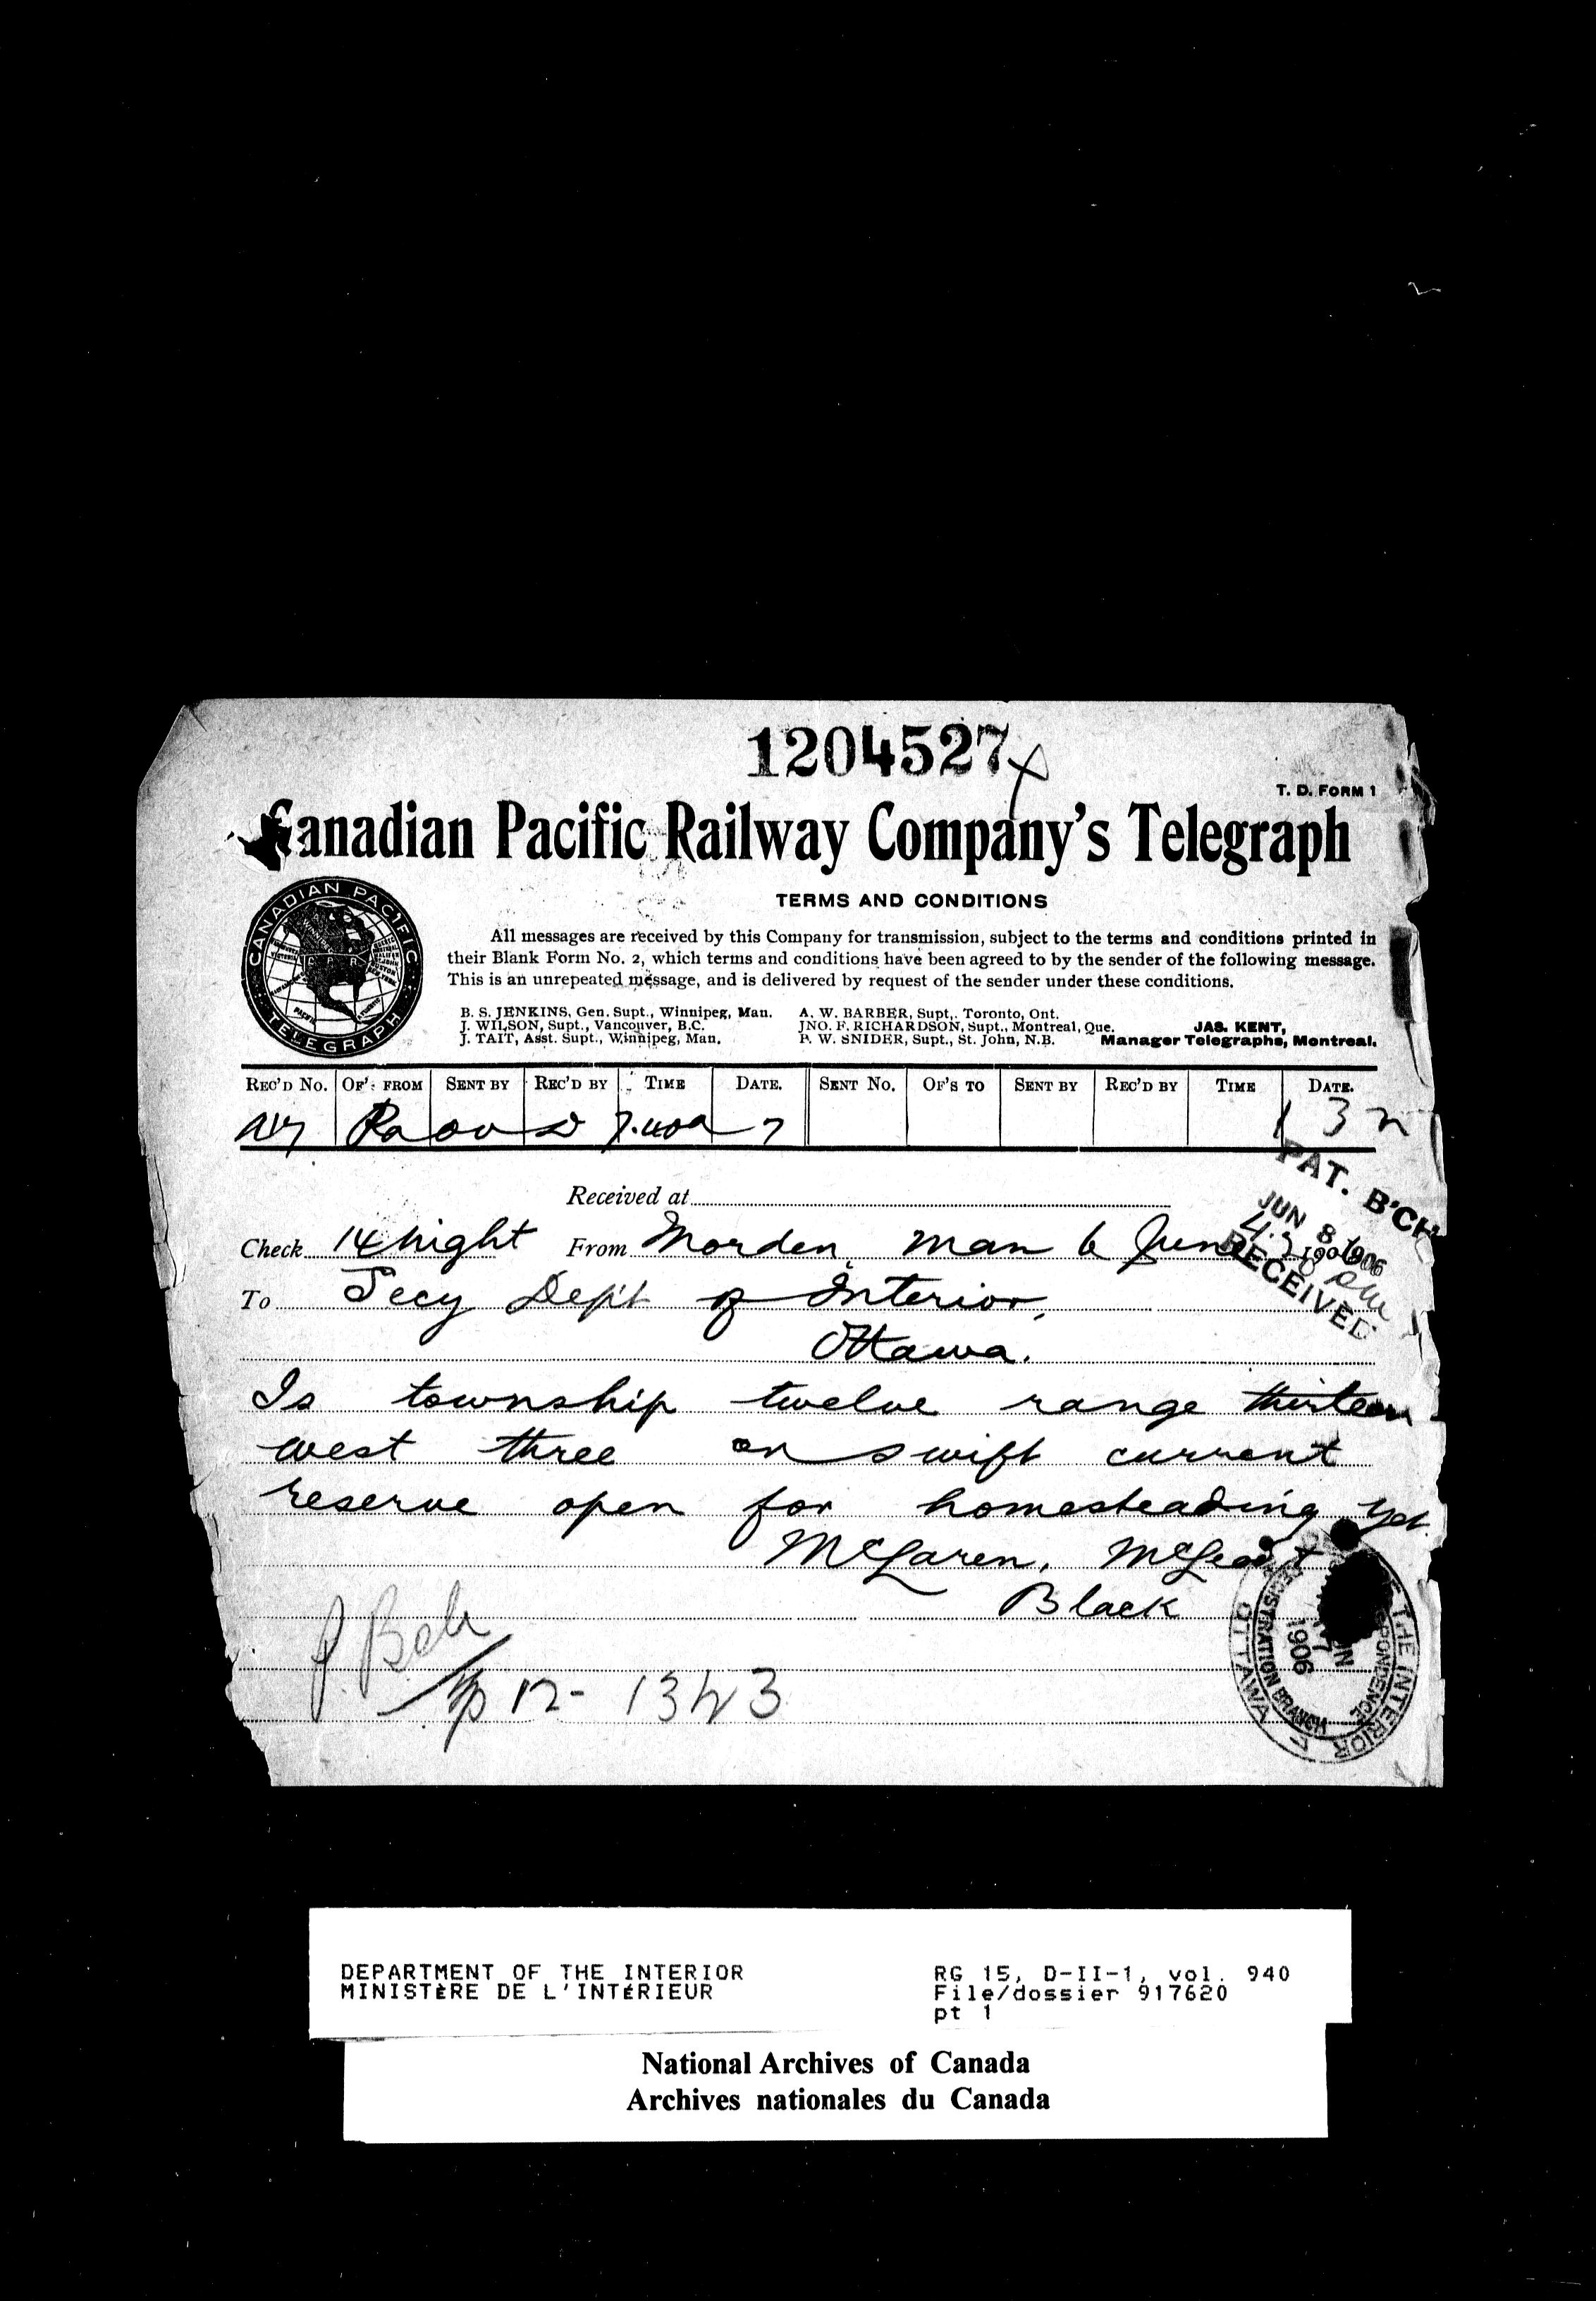 1204527
T. D. FORM 1
Canadian Pacific Railway Company's Telegraph
TERMS AND CONDITIONS
CANADIAN PACIFIC
TELEGRAPH
All messages are received by this Company for transmission, subject to the terms and conditions printed in
their Blank Form No. 2, which terms and conditions have been agreed to by the sender of the following message.
This is an unrepeated message, and is delivered by request of the sender under these conditions.
B. S. JENKINS, Gen. Supt., Winnipeg, Man. A. W. BARBER, Supt., Toronto, Ont.
J. WILSON, Supt., Vancouver, B.C. JNO. F. RICHARDSON, Supt., Montreal, Que. JAS. KENT,
J. TAIT, Asst. Supt., Winnipeg, Man. P. W. SNIDER, Supt., St. John, N.B. Manager Telegraphs, Montreal.
REC'D No. OF'S FROM SENT BY REC'D BY TIME DATE. SENT No. OF'S TO SENT BY REC'D BY TIME DATE.
7
PAT. B'CH
JUN 8 1906
RECEIVED
Received at
Check 14 night From Morden, Man 6 June 1906
To Secy Dep't of Interior,
Ottawa.
Is township twelve range thirteen
west three on swift current
reserve open for homesteading yet.
McLaren, McLeod &
Black
12- 13 W 3
THE INTERIOR
REGISTRATION BRANCH
1906
OTTAWA
DEPARTMENT OF THE INTERIOR RG 15, D-II-1, vol. 940
MINISTÈRE DE L'INTÉRIEUR File/dossier 917620
pt 1
National Archives of Canada
Archives nationales du Canada